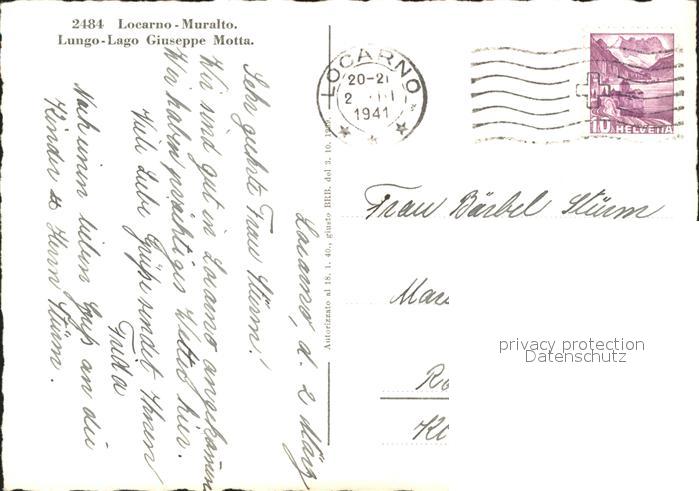 2484 Locarno-Muralto.
Lungo-Lago Giuseppe Motta.
LOCARNO
20-21
2 III
1941
10 HELVETIA
Autorizzato al 18. 1. 40., giusto BRB. del 3. 10. 1939.
Locarno, d. 2 März
Sehr geehrte Frau Stürm!
Wir sind gut in Locarno angekommen
Wir haben prächtiges Wetter hier.
Viele Liebe Grüsse sendet Ihnen
Frida
Nah einen lieben Gruß an die
Kinder & Herrn Stürm.
Frau Bärbel Stürm
privacy protection
Datenschutz